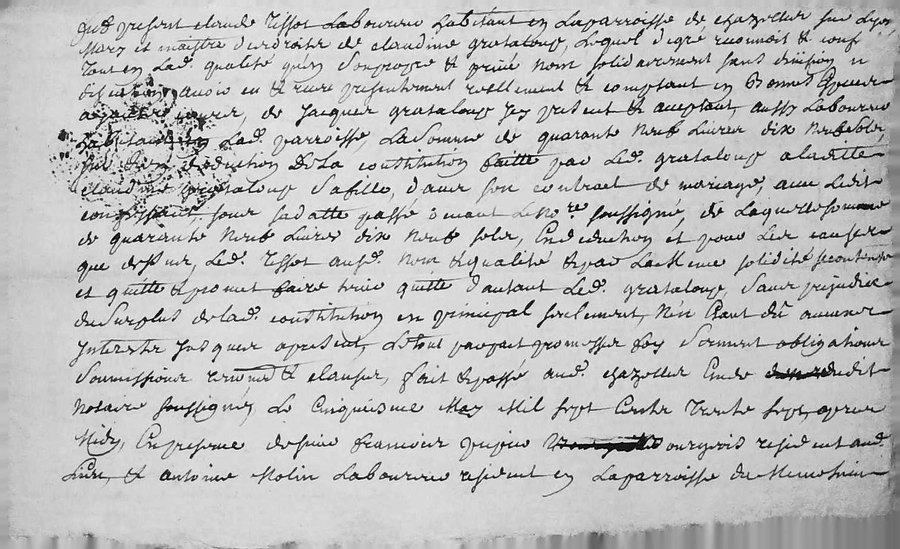 present claude tissot Laboureur habitant en La parroisse de chazelles sur Lyon
Mary et maistre des droits de claudine grataloup, Lequel de gré reconnoit & conf
tout en Lad. qualité qu'en son propre & privé nom solidairement sans division n
discution avoir eu & receu presentement reellement & comptant en Bonnes Especes
de Jacques grataloup Icy present & aceptant, aussy Laboureur
habitant en Lad. parroisse, La somme de quarante neuf Livres dix neuf sols
deduction de La constitution faitte par Led. grataloup a laditte
claudine grataloup sa fille, dans son contract de mariage, avec Ledit
confessant, sous sa datte passé devant Le No.re soussigné, de Laquelle somme
de quarante neuf Livres dix neuf sols, En deduction et pour Les causes
que dessus, Led. tissot aud. nom & qualité & par La Meme solidité se contente
et quitte & promet faire tenir quitte d'autant Led. grataloup, sans prejudice
du surplus de Lad. constitution en principal seulement, N'en Etant dû aucuns
Interests Jusques apresent, Le tout par pact promesses foy serment obligations
soumissions renon.on & clauses, fait & passé aud. chazelles Etude dudit
Notaire soussigné, Le Cinquieme May Mil sept Cents trente sept, apres
Midy, En presence de sieur francois pupier Bourgeois resident aud.
Lieu, & antoine Molin Laboureur resident en La parroisse de